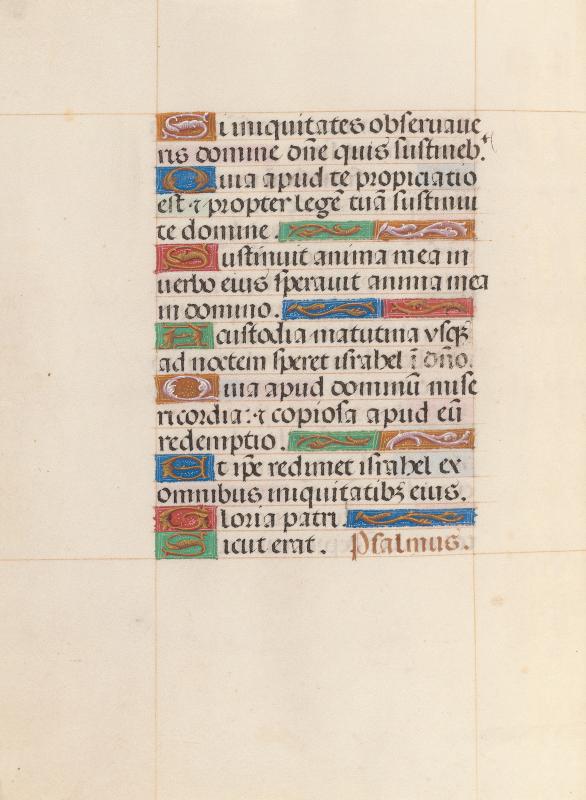 Si iniquitates obseruaue
ris domine dñe quis sustineb.ᵗ
Quia apud te propiciatio
est ⁊ propter legẽ tuã sustinui
te domine.
Sustinuit anima mea in
uerbo eius sperauit anima mea
in domino.
A custodia matutina vsq̃
ad noctem speret israhel ĩ dño.
Quia apud dominũ mise
ricordia: ⁊ copiosa apud eũ
redemptio.
Et ip̃e redimet israhel ex
omnibus iniquitatibꝫ eius.
Gloria patri.
Sicut erat. Psalmus.